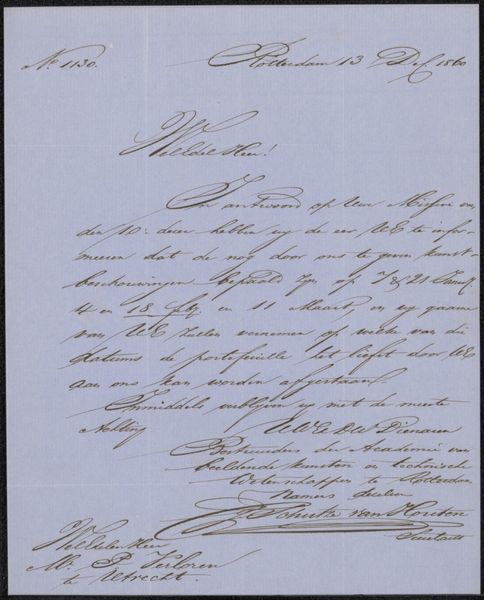 No 1130. Rotterdam 13 Dec 1860
WelEdel Heer!
In antwoord op Uwe Missive van
den 10e dezer hebben wij de eer UE te infor-
meeren dat de nog door ons te geven kunst-
beschouwingen bepaald zijn op 7 & 21 Januarij
4 en 18 feb. en 11 Maart, en wij gaarne
van UE zullen vernemen op welke van die
datums de portefeuille het liefst door UE
aan ons kan worden afgestaan.
Inmiddels verblijven wij met de meeste
Achting
UWE DW Dienaren
Bestuurders der Academie van
beeldende kunsten en technische
Wetenschappen te Rotterdam
Namens dezelven
van Houten
Secretaris
WelEdelen Heer
Mr. P. Verloren
te Utrecht.